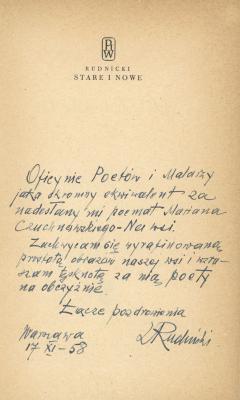 PIW
RUDNICKI
STARE I NOWE
Oficynie Poetów i Malarzy
jako skromny ekwiwalent za
nadesłany mi poemat Mariana
Czuchnowskiego - Na wsi.
Zachwycam się wyrafinowaną
prostotą obrazów naszej wsi i wzru-
szam tęsknotą za nią poety
na obczyźnie.
Łączę pozdrowienia
Warszawa
17 XI - 58
LRudnicki